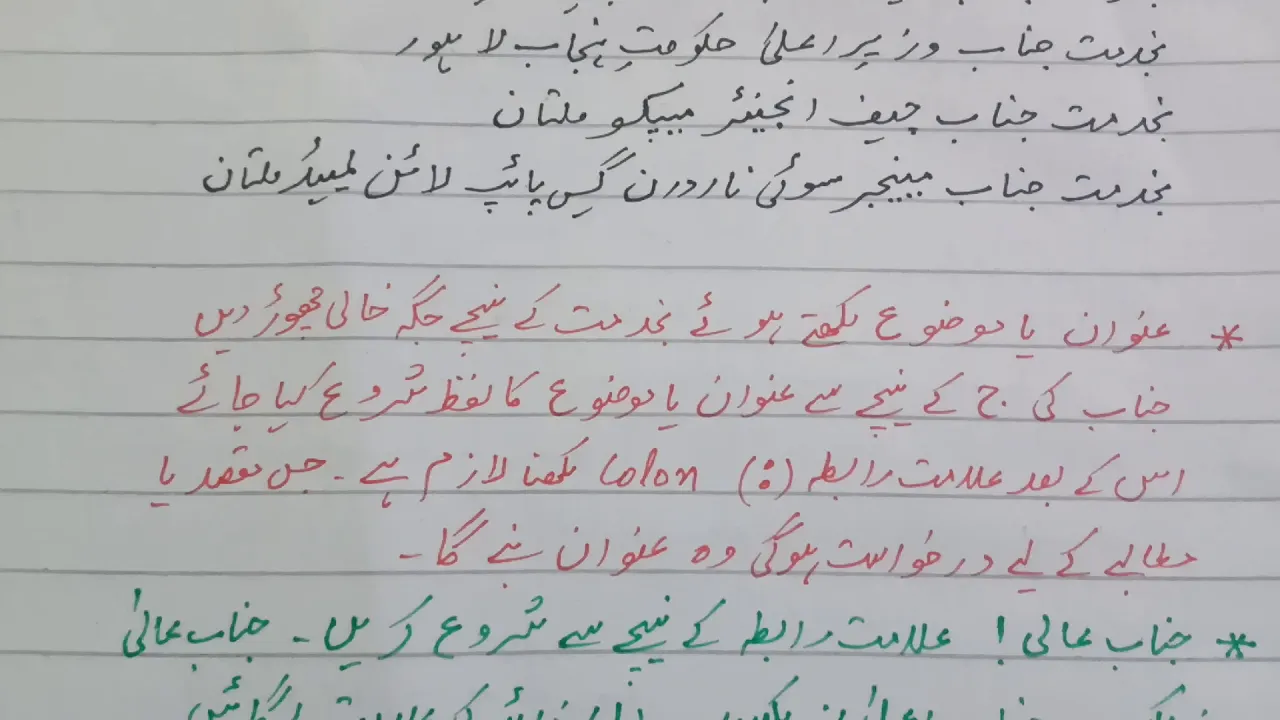 بخدمت جناب وزیرِ اعلیٰ حکومتِ پنجاب لاہور
بخدمت جناب چیف انجینئر میپکو ملتان
بخدمت جناب مینیجر سوئی ناردرن گیس پائپ لائن لمیٹڈ ملتان
* عنوان یا موضوع لکھتے ہوئے بخدمت کے نیچے جگہ خالی چھوڑ دیں
جناب کی ج کے نیچے سے عنوان یا موضوع کا لفظ شروع کیا جائے
اس کے بعد علامت رابطہ (:) Colon لکھنا لازم ہے۔ جس مقصد یا
مطالبے کے لیے درخواست ہوگی وہ عنوان بنے گا۔
* جناب عالی! علامت رابطہ کے نیچے سے شروع کریں۔ جناب عالیٰ